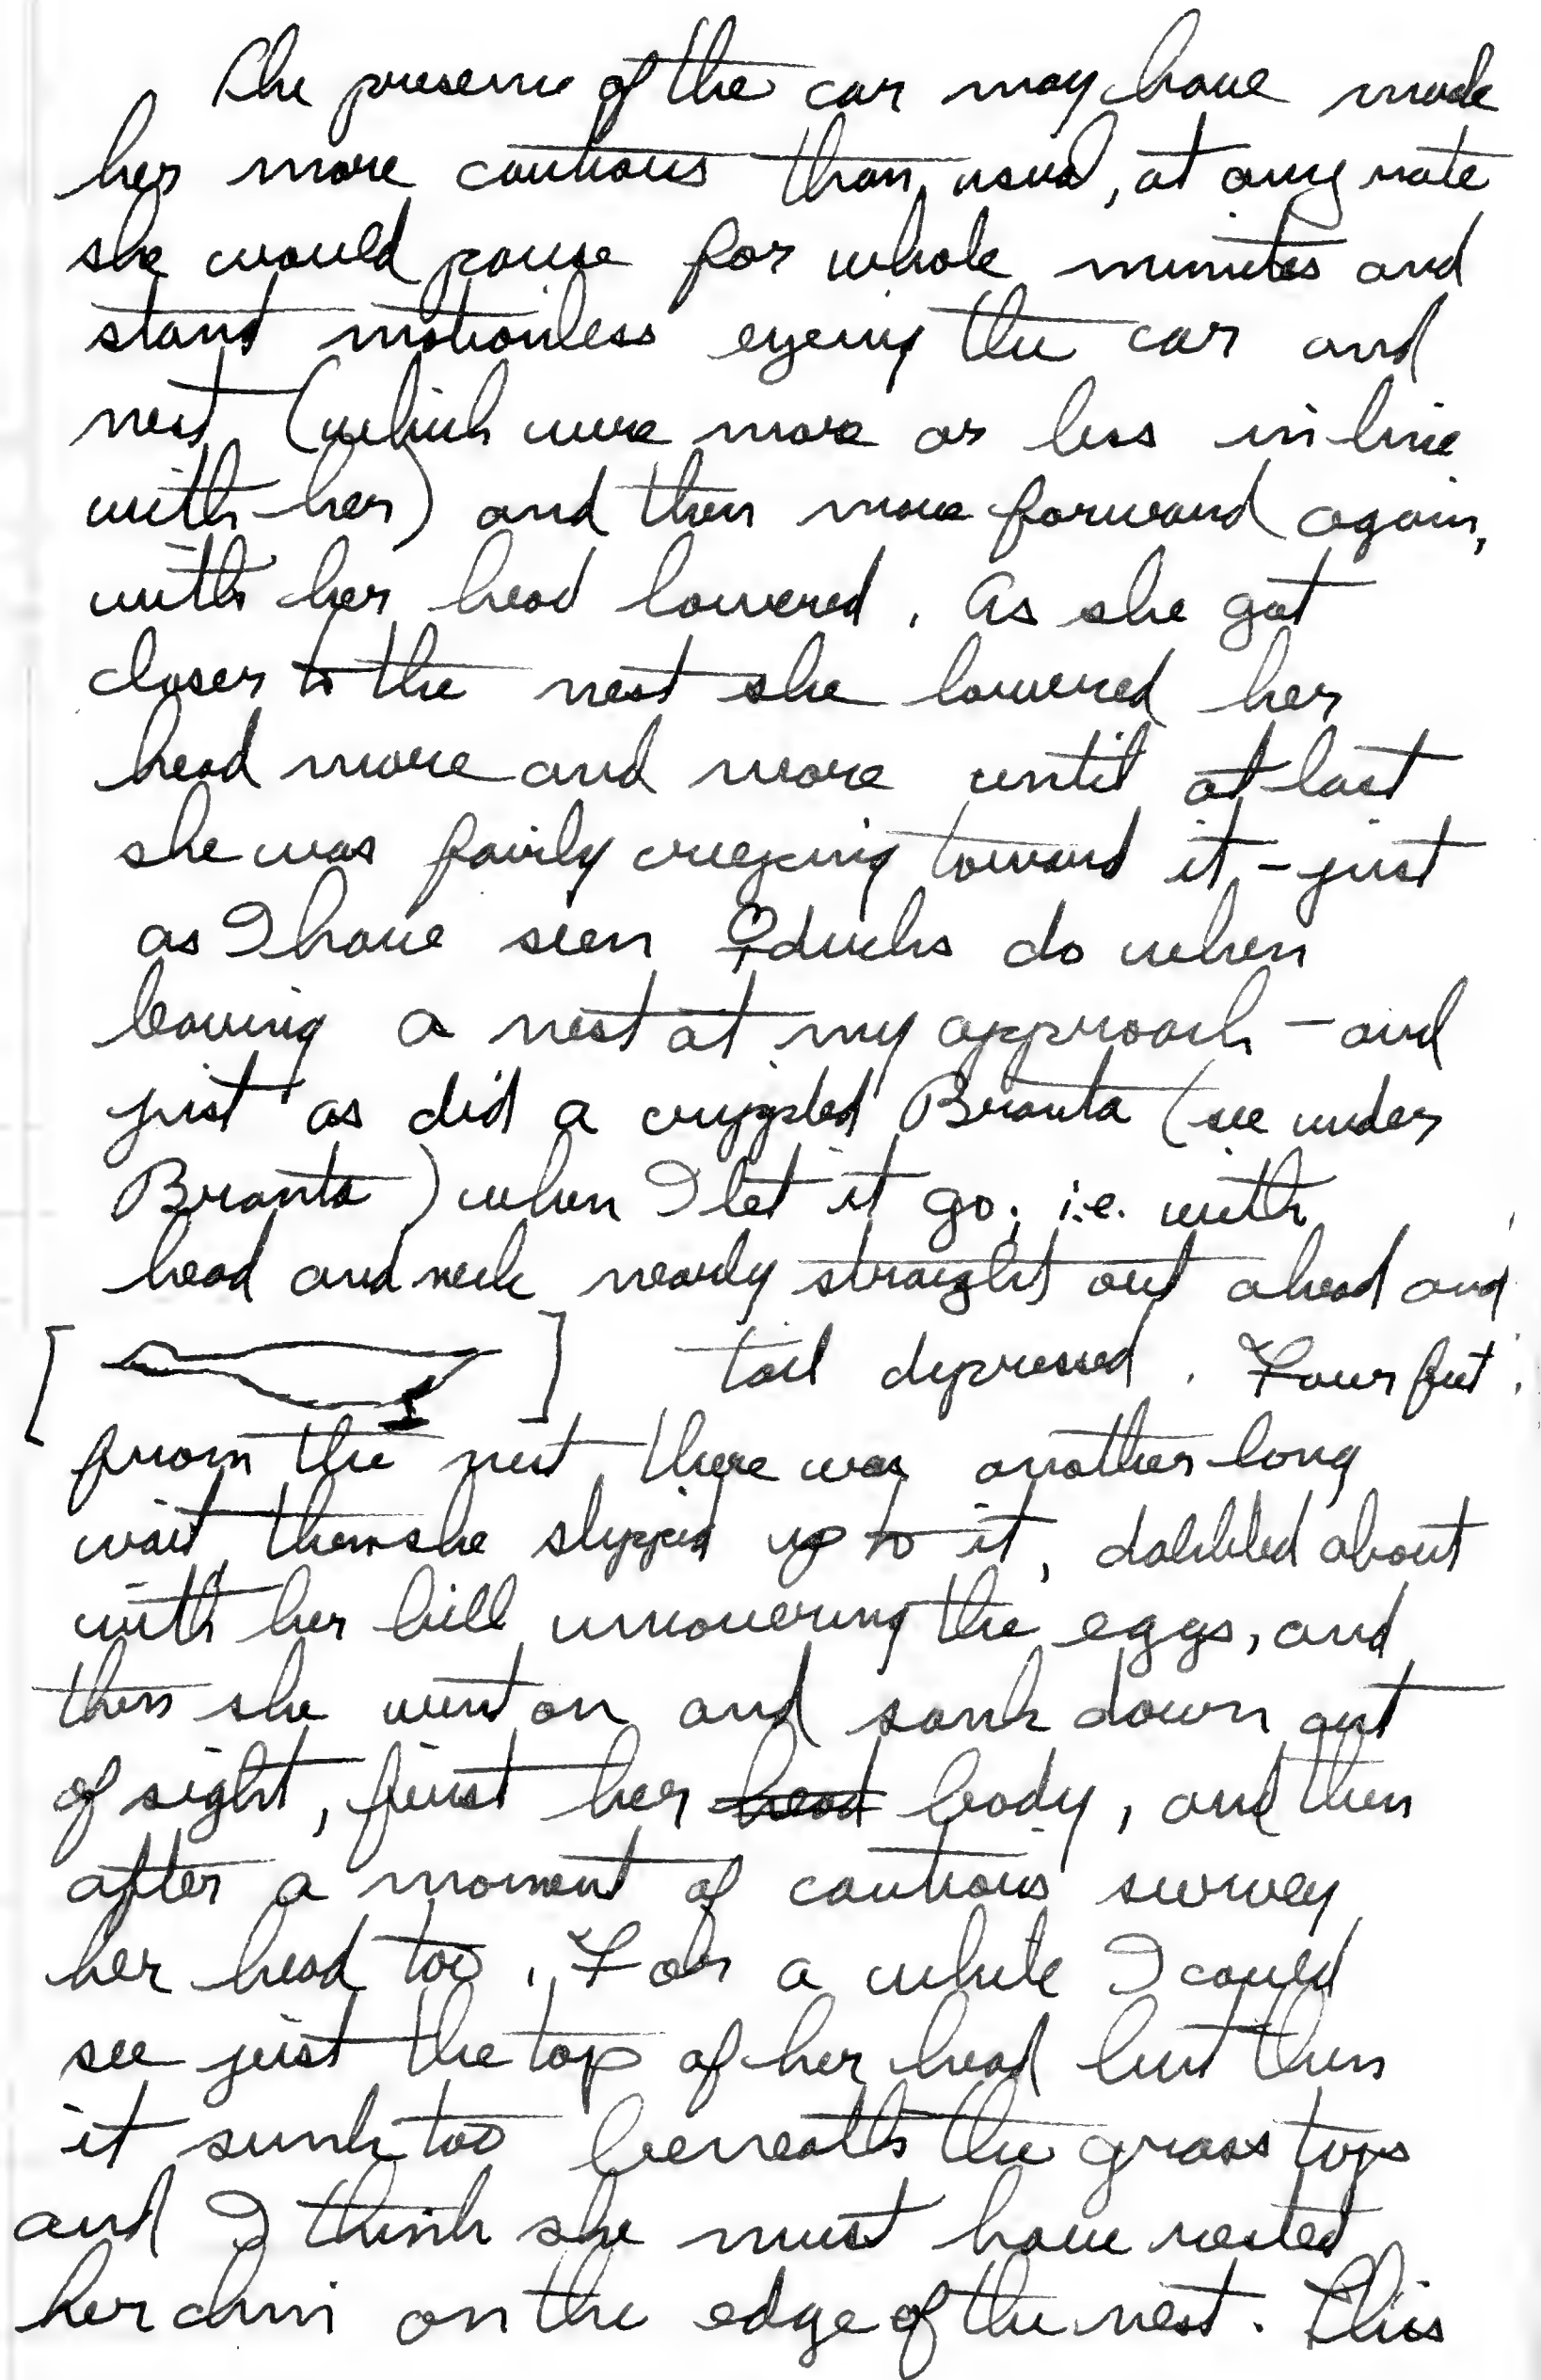 The presence of the car may have made
her more cautious than usual, at any rate
she would pause for whole minutes and
stand motionless eyeing the car and
nest (which were more or less in line
with her) and then move forward again,
with her head lowered. As she got
closer to the nest she lowered her
head more and more until at last
she was fairly creeping toward it - just
as I have seen ♀ ducks do when
leaving a nest at my approach - and
just as did a crippled Branta (see under
Branta) when I let it go; i.e. with
head and neck nearly straight out ahead and
[ ] tail depressed. Four feet
from the nest there was another long
wait, then she slipped up to it, dabbled about
with her bill uncovering the eggs, and
then she went on and sank down out
of sight, first her head body, and then
after a moment of cautious survey
her head too. For a while I could
see just the top of her head but then
it sunk too beneath the grass tops
and I think she must have rested
her chin on the edge of the nest. This